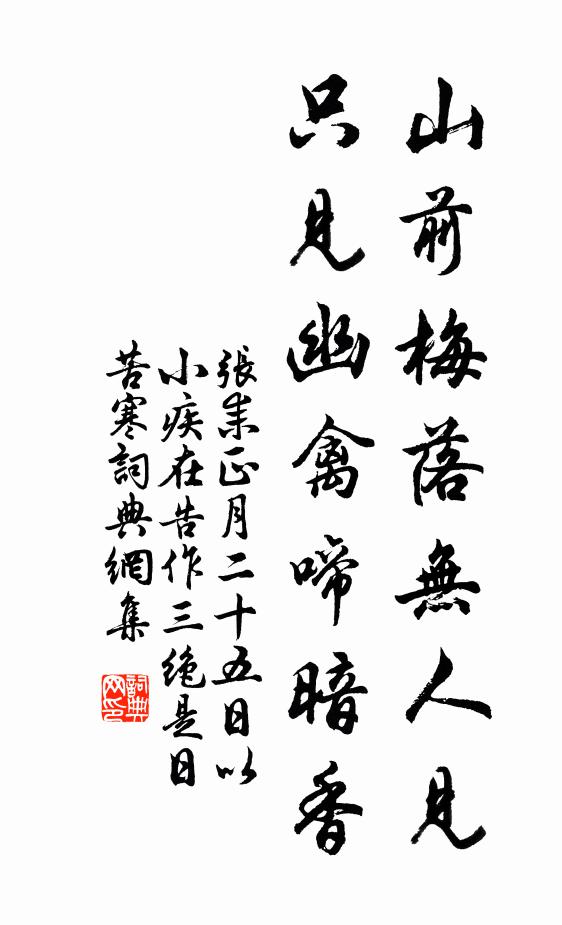 山前梅落無人見
只見幽禽啼暗香
張耒正月二十五日以
小疾在告作三絶是日
苦寒詞典網集
詞典网印